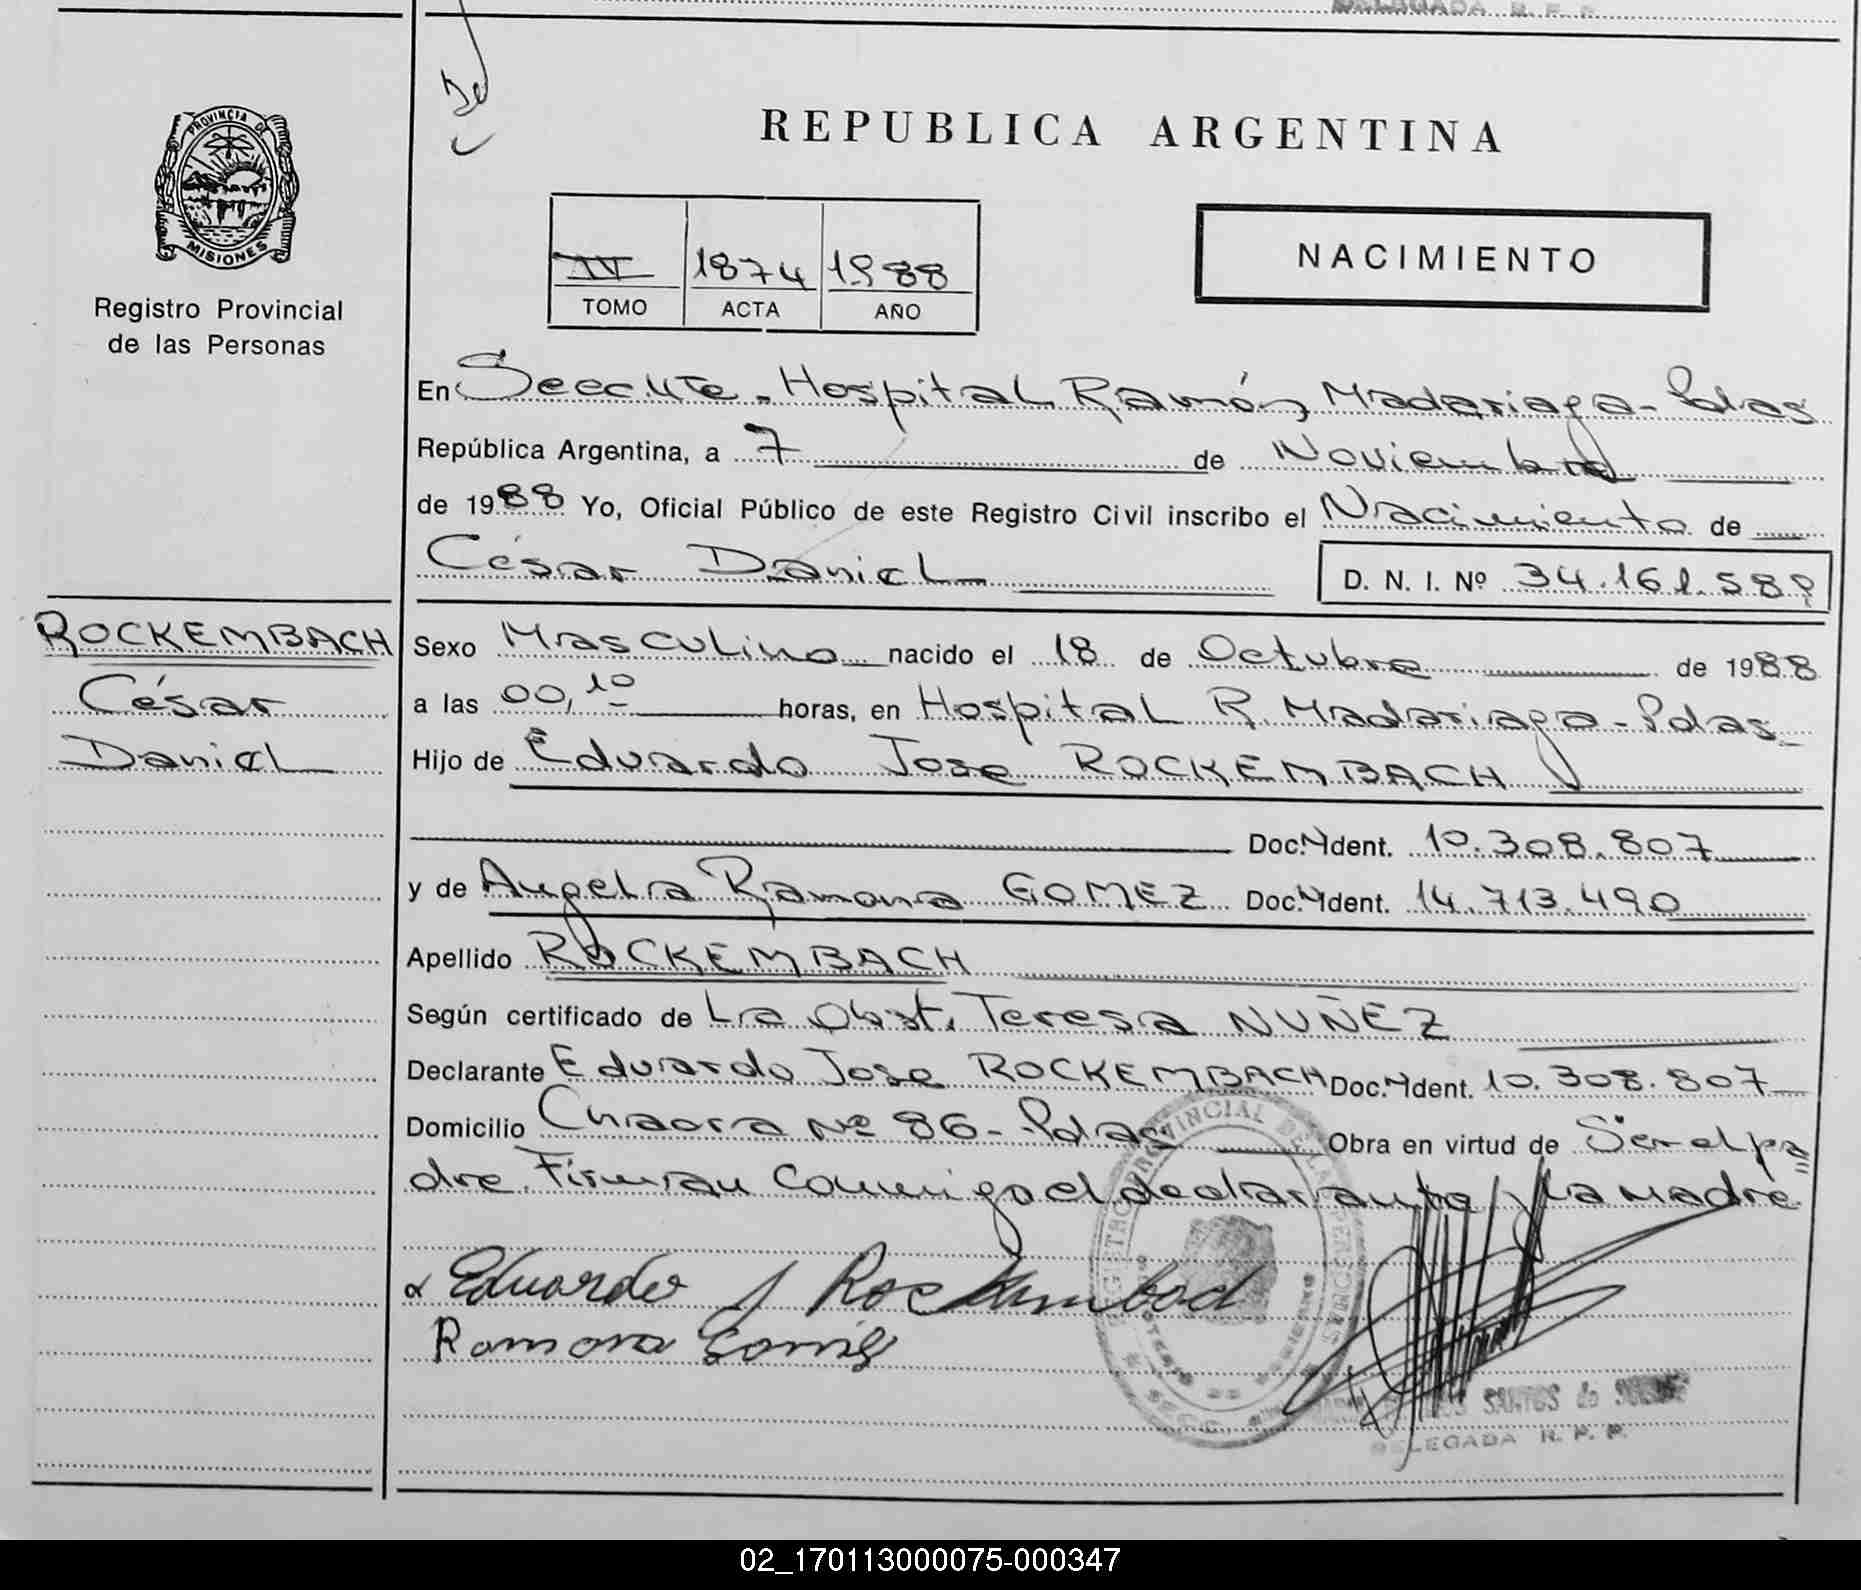 DELEGADA R. P. P.
PROVINCIA DE
MISIONES
Registro Provincial
de las Personas
REPUBLICA ARGENTINA
IV 1874 1988
TOMO ACTA AÑO
NACIMIENTO
En Hospital Ramón Madariaga - Pdas
República Argentina, a 7 de Noviembre
de 1988 Yo, Oficial Público de este Registro Civil inscribo el Nacimiento de
César Daniel
D. N. I. Nº 34.161.589
ROCKEMBACH
César
Daniel
Sexo Masculino nacido el 18 de Octubre de 1988
a las 00,10 horas, en Hospital R. Madariaga - Pdas
Hijo de Eduardo Jose ROCKEMBACH
Doc. N Ident. 10.308.807
y de Angela Ramona GOMEZ Doc. N Ident. 14.713.490
Apellido ROCKEMBACH
Según certificado de La Obst. Teresa NUÑEZ
Declarante Eduardo Jose ROCKEMBACH Doc. N Ident. 10.308.807
Domicilio Chacra Nº 86 - Pdas Obra en virtud de Ser el pa
dre. Firman conmigo el declarante y la madre
Eduardo J Rockembach
Ramona Gomez
SANTOS de
DELEGADA R. P. P.
02_170113000075-000347